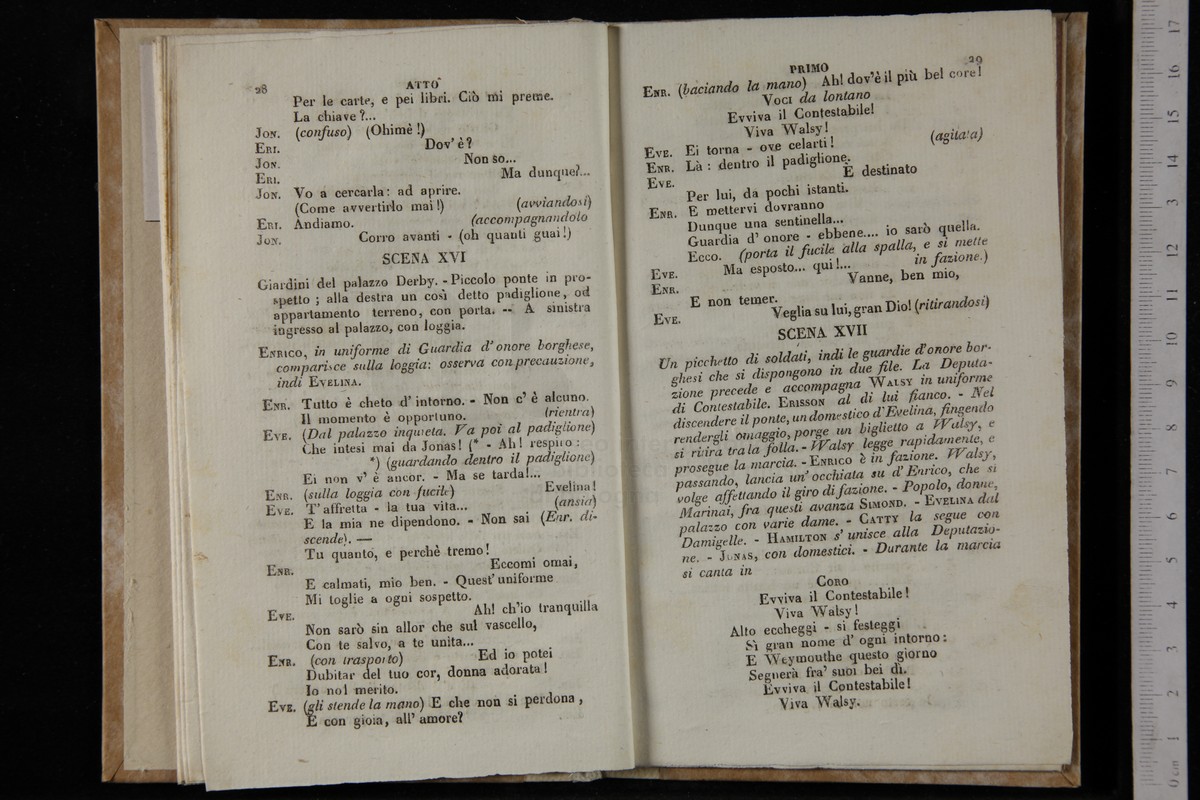 28
ATTO
Per le carte, e pei libri. Ciò mi preme.
La chiave?...
JON. (confuso) (Ohimè!)
ERI. Dov' è?
JON. Non so...
ERI. Ma dunque?...
JON. Vo a cercarla: ad aprire.
(Come avvertirlo mai!) (avviandosi)
ERI. Andiamo. (accompagnandolo
JON. Corro avanti - (oh quanti guai!)
SCENA XVI
Giardini del palazzo Derby. - Piccolo ponte in pro-
spetto; alla destra un così detto padiglione, od
appartamento terreno, con porta. -- A sinistra
ingresso al palazzo, con loggia.
ENRICO, in uniforme di Guardia d'onore borghese,
comparisce sulla loggia: osserva con precauzione,
indi EVELINA.
ENR. Tutto è cheto d' intorno. - Non c' è alcuno.
Il momento è opportuno. (rientra)
EVE. (Dal palazzo inquieta. Va poi al padiglione)
Che intesi mai da Jonas! (* - Ah! respiro:
*) (guardando dentro il padiglione)
Ei non v' è ancor. - Ma se tarda!...
ENR. (sulla loggia con fucile) Evelina!
EVE. T' affretta - la tua vita... (ansia)
E la mia ne dipendono. - Non sai (Enr. di-
scende). —
Tu quanto, e perchè tremo!
ENR. Eccomi omai,
E calmati, mio ben. - Quest' uniforme
Mi toglie a ogni sospetto.
EVE. Ah! ch'io tranquilla
Non sarò sin allor che sul vascello,
Con te salvo, a te unita...
ENR. (con trasporto) Ed io potei
Dubitar del tuo cor, donna adorata!
Io nol merito.
EVE. (gli stende la mano) E che non si perdona,
E con gioia, all' amore?
PRIMO
29
ENR. (baciando la mano) Ah! dov'è il più bel core!
VOCI da lontano
Evviva il Contestabile!
Viva Walsy!
EVE. Ei torna - ove celarti! (agitata)
ENR. Là: dentro il padiglione.
EVE. È destinato
Per lui, da pochi istanti.
ENR. E mettervi dovranno
Dunque una sentinella...
Guardia d' onore - ebbene.... io sarò quella.
Ecco. (porta il fucile alla spalla, e si mette
EVE. Ma esposto... qui!... in fazione.)
ENR. Vanne, ben mio,
E non temer.
EVE. Veglia su lui, gran Dio! (ritirandosi)
SCENA XVII
Un picchetto di soldati, indi le guardie d'onore bor-
ghesi che si dispongono in due file. La Deputa-
zione precede e accompagna WALSY in uniforme
di Contestabile. ERISSON al di lui fianco. - Nel
discendere il ponte, un domestico d'Evelina, fingendo
rendergli omaggio, porge un biglietto a Walsy, e
si ritira tra la folla. - Walsy legge rapidamente, e
prosegue la marcia. - ENRICO è in fazione. Walsy,
passando, lancia un' occhiata su d' Enrico, che si
volge affettando il giro di fazione. - Popolo, donne,
Marinai, fra questi avanza SIMOND. - EVELINA dal
palazzo con varie dame. - CATTY la segue con
Damigelle. - HAMILTON s' unisce alla Deputazio-
ne. - JONAS, con domestici. - Durante la marcia
si canta in
CORO
Evviva il Contestabile!
Viva Walsy!
Alto eccheggi - si festeggi
Sì gran nome d' ogni intorno:
E Weymouthe questo giorno
Segnerà fra' suoi bei dì.
Evviva il Contestabile!
Viva Walsy.